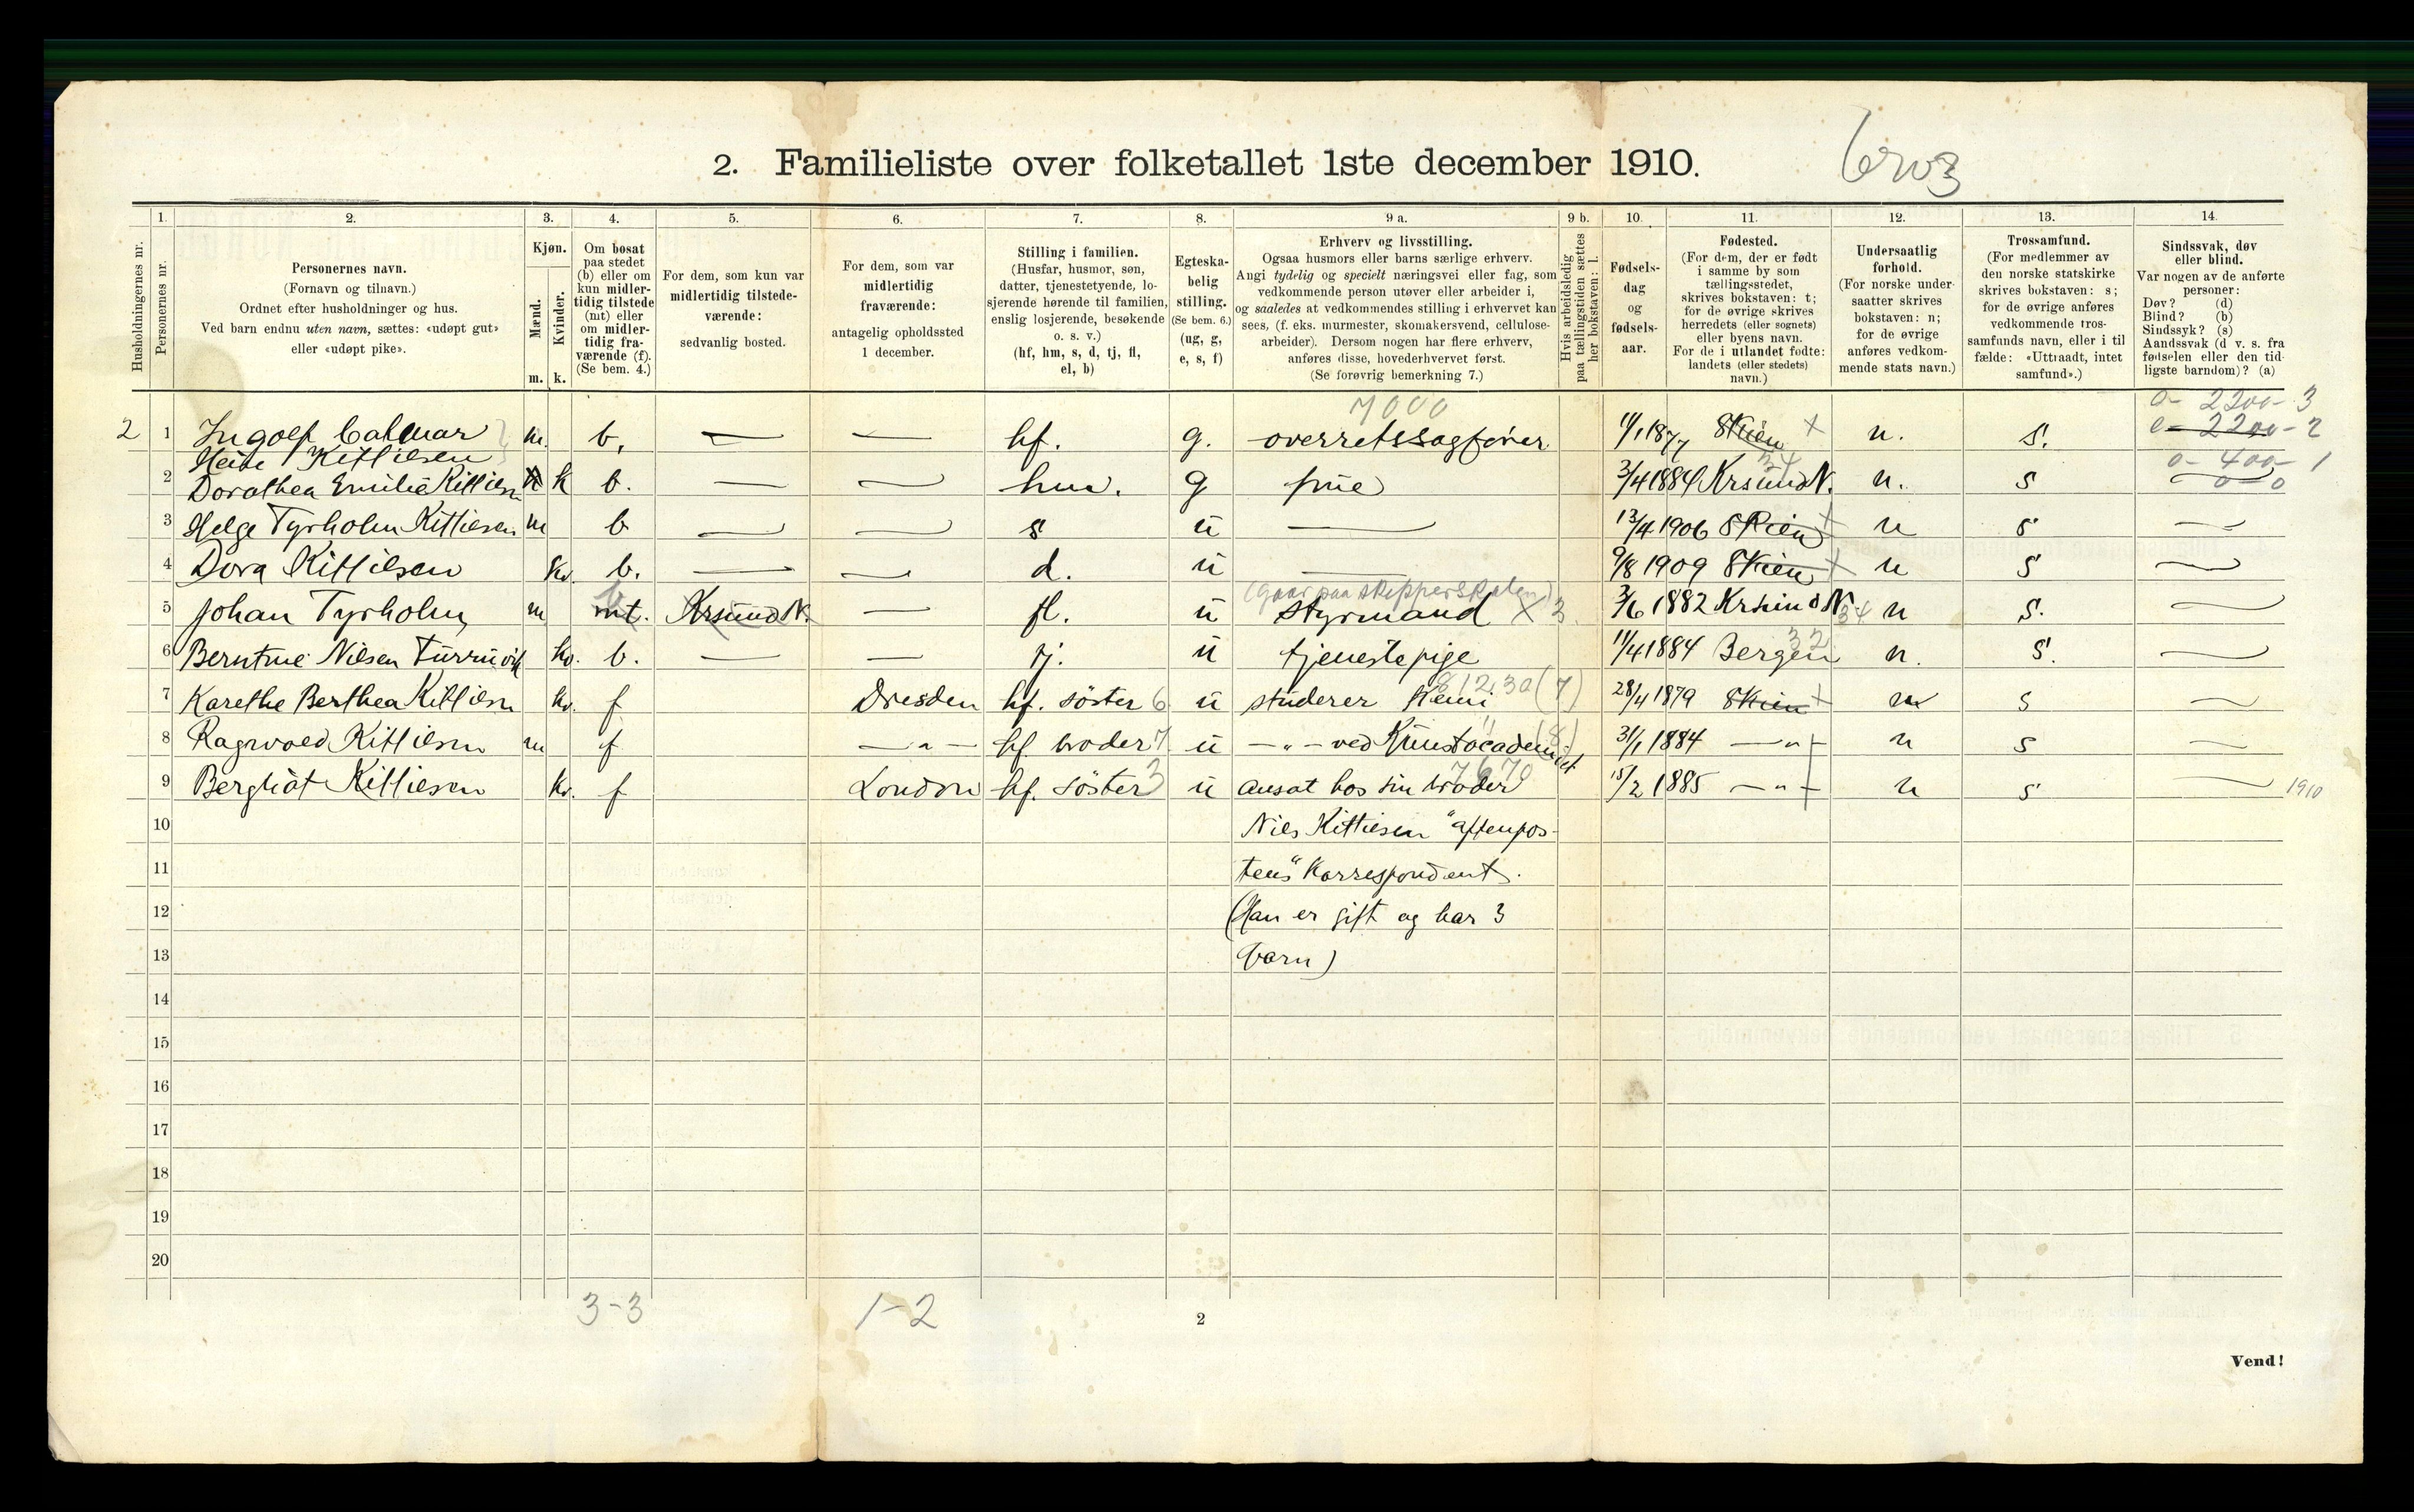 2. Familieliste over folketallet 1ste december 1910.
Husholdningernes nr.
1.
Personernes nr.
2.
Personernes navn.
(Fornavn og tilnavn.)
Ordnet efter husholdninger og hus.
Ved barn endnu uten navn, sættes: «udøpt gut»
eller «udøpt pike».
3.
Kjøn.
Mænd.
Kvinder.
m. k.
4.
Om bosat
paa stedet
(b) eller om
kun midler-
tidig tilstede
(mt) eller
om midler-
tidig fra-
værende (f).
(Se bem. 4.)
5.
For dem, som kun var
midlertidig tilstede-
værende:
sedvanlig bosted.
6.
For dem, som var
midlertidig
fraværende:
antagelig opholdssted
1 december.
7.
Stilling i familien.
(Husfar, husmor, søn,
datter, tjenestetyende, lo-
sjerende hørende til familien,
enslig losjerende, besøkende
o. s. v.)
(hf, hm, s, d, tj, fl,
el, b)
8.
Egteska-
belig
stilling.
(Se bem. 6.)
(ug, g,
e, s, f)
9 a.
Erhverv og livsstilling.
Ogsaa husmors eller barns særlige erhverv.
Angi tydelig og specielt næringsvei eller fag, som
vedkommende person utøver eller arbeider i,
og saaledes at vedkommendes stilling i erhvervet kan
sees, (f. eks. murmester, skomakersvend, cellulose-
arbeider). Dersom nogen har flere erhverv,
anføres disse, hovederhvervet først.
(Se forøvrig bemerkning 7.)
9 b.
Hvis arbeidsledig
paa tællingstiden sættes
her bokstaven: l.
10.
Fødsels-
dag
og
fødsels-
aar.
11.
Fødested.
(For dem, der er født
i samme by som
tællingsstedet,
skrives bokstaven: t;
for de øvrige skrives
herredets (eller sognets)
eller byens navn.
For de i utlandet fødte:
landets (eller stedets)
navn.)
12.
Undersaatlig
forhold.
(For norske under-
saatter skrives
bokstaven: n;
for de øvrige
anføres vedkom-
mende stats navn.)
13.
Trossamfund.
(For medlemmer av
den norske statskirke
skrives bokstaven: s;
for de øvrige anføres
vedkommende tros-
samfunds navn, eller i til
fælde: «Uttraadt, intet
samfund».)
14.
Sindssvak, døv
eller blind.
Var nogen av de anførte
personer:
Døv? (d)
Blind? (b)
Sindssyk? (s)
Aandssvak (d v. s. fra
fødselen eller den tid-
ligste barndom)? (a)
7000
o- 2200- 3
e- 2200- 2
2 1 Ingolf Calmar m. b. — — hf. g. overretssagfører 11/1 1877 Skien + n. s.
Heie Kittilsen
o- 400- 1
0-0
2 Dorothea Emilie Kittilsen k b. — — hm. g frue 3/4 1884 Krsund N. 34 n. s
3 Helge Tyrholm Kittilsen m b — — s u — 13/4 1906 Skien + n s —
4 Dora Kittilsen kv. b. — — d. u — 9/8 1909 Skien + n s —
(gaar paa skipperskolen)
5 Johan Tyrholm m mt. b Krsund N. — fl. u styrmand X 3 3/6 1882 Krsund N. 34 n s. —
6 Berntine Nilsen kv. b. — — tj. u tjenestepige 11/4 1884 Bergen 32 n. s. —
7 Karethe Berthea Kittilsen kv. f Dresden hf. söster 6 u studerer Kemi 81230 (7) 28/4 1879 Skien + n s —
8 Ragnvald Kittilsen m f — „ — hf. broder 7 u — „ — ved Kunstacademiet (8) 31/1 1884 — „ — + n s —
9 Bergliot Kittilsen kv. f London hf. söster 3 u ansat hos sin broder 7670 15/2 1885 — „ — + n s — 1910
10 Nils Kittilsen "aftenpos-
11 tens" Korrespondent.
12 (Han er gift og har 3
13 barn)
14
15
16
17
18
19
20
3-3 1-2
2
Vend!